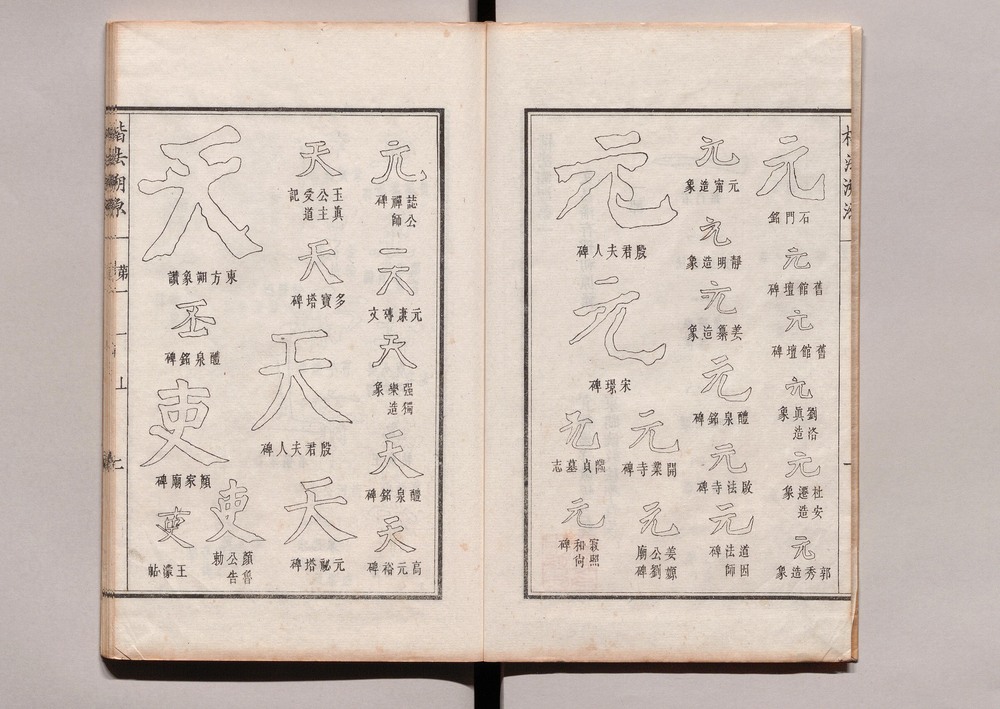 元
石門銘
元
舊館壇碑
元
舊館壇碑
元
劉洛真造象
元
杜安遷造象
元
郭秀造象
元
元甯造象
元
靜明造象
元
姜纂造象
元
醴泉銘碑
元
啟法寺碑
元
道因法師碑
元
殷君夫人碑
元
宋璟碑
元
開業寺碑
元
姜嫄公劉廟碑
元
貞墓志
元
寂照和尚碑
元
誌公禪師碑
天
元康磚文
天
强獨樂造象
天
醴泉銘碑
天
高元裕碑
天
玉真公主受道記
天
多寶塔碑
天
殷君夫人碑
天
元祕塔碑
天
東方朔象讚
丕
醴泉銘碑
吏
顏家廟碑
吏
顏魯公告勅
吏
王濛帖
楷法溯源
第一
七